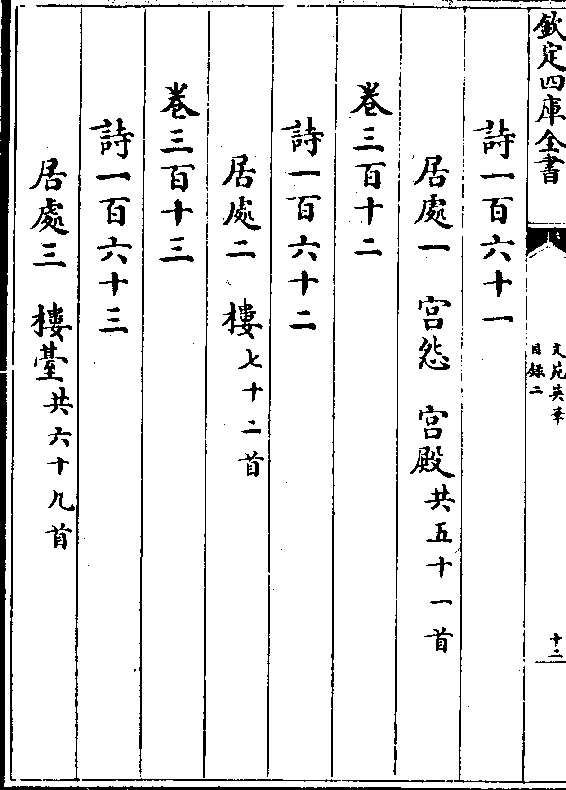 欽定四庫全書
文苑英華
目錄二
十二
詩一百六十一
居處一　宮怨　宮殿共五十一首
卷三百十二
詩一百六十二
居處二　樓七十二首
卷三百十三
詩一百六十三
居處三　樓臺共六十九首